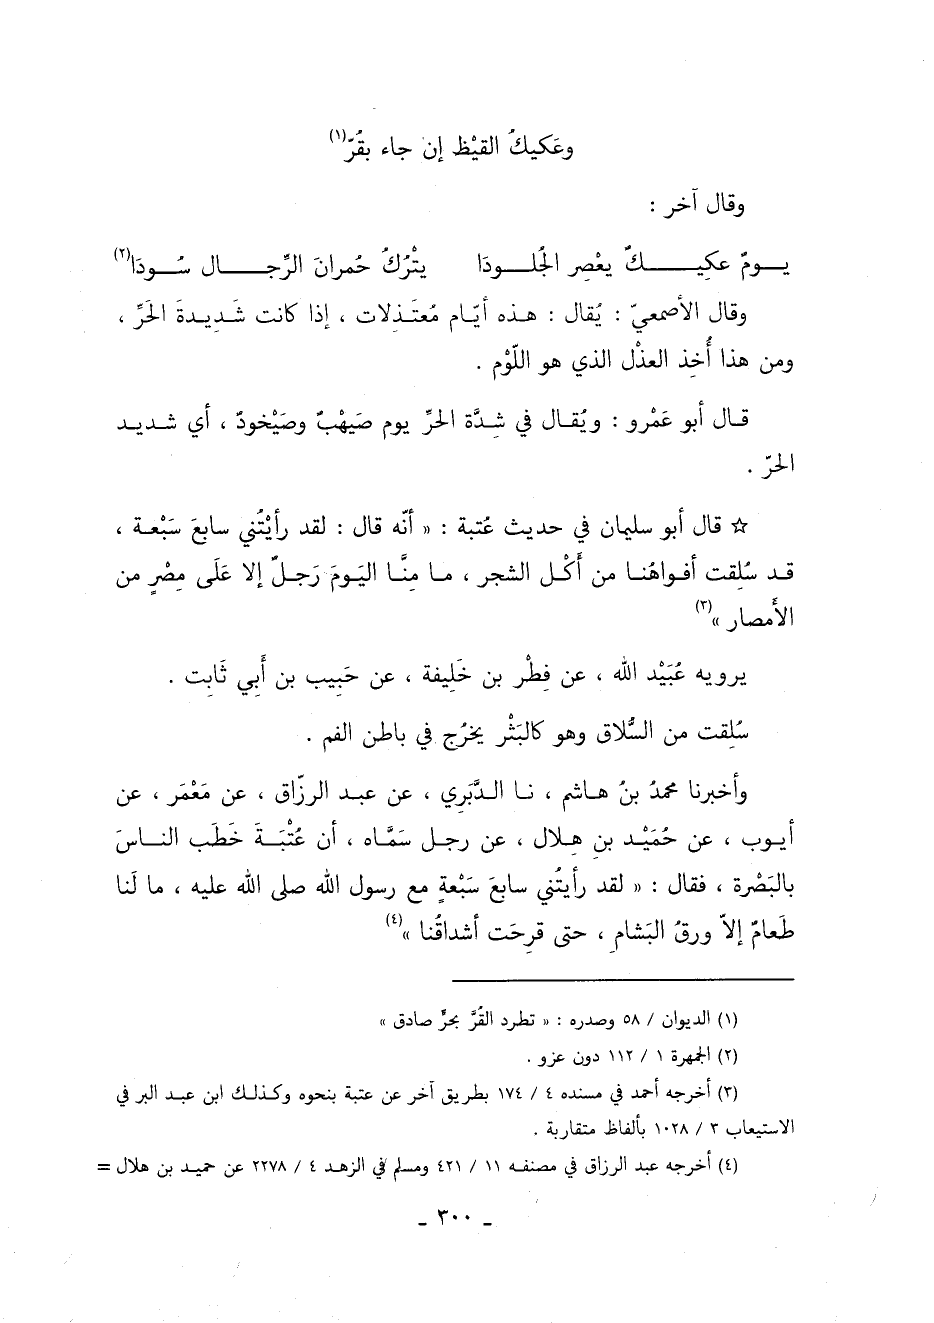 وعَكيكُ القيْظ إن جاء بقُرّ(١)
وقال آخر :
يومٌ عكيكٌ يعْصِر الجُلودَا يتْرُكُ حُمرانَ الرِّجال سُودَا(٢)
وقال الأصمعيّ : يُقال : هذه أيّام مُعتَذِلات ، إذا كانت شَديدةَ الحَرِّ ،
ومن هذا أُخِذ العذْل الذي هو اللّوْم .
قال أبو عَمْرو : ويُقال في شِدَّة الحرِّ يوم صَيْهَبٌ وصَيْخودٌ ، أي شديد
الحَرّ .
☆ قال أبو سليمان في حديث عُتبة : « أنّه قال : لقد رأيْتُني سابعَ سَبْعة ،
قد سُلِقت أفواهُنا من أَكْل الشجر ، ما منَّا اليَومَ رَجلٌ إلا عَلَى مِصْرٍ من
الأَمصار »(٣)
يرويه عُبَيْد الله ، عن فِطْر بن خَلِيفة ، عن حَبِيب بن أَبي ثَابِت .
سُلِقت من السُّلاق وهو كالبَثْر يَخرُج في باطن الفم .
وأخبرنا محمدُ بنُ هاشم ، نا الدَّبَري ، عن عبد الرزّاق ، عن مَعْمَر ، عن
أيوب ، عن حُمَيْد بن هِلال ، عن رجل سَمَّاه ، أن عُتْبَةَ خَطَب الناسَ
بالبَصْرة ، فقال : « لقد رأيتُني سابعَ سَبْعةٍ مع رسول الله صلى الله عليه ، ما لَنا
طَعامٌ إلاّ ورقُ البَشام ، حتى قرِحَت أشداقُنا »(٤)
(١) الديوان / ٥٨ وصدره : « تطرد القُرَّ بحرٍّ صادق »
(٢) الجمهرة ١ / ١١٢ دون عزو .
(٣) أخرجه أحمد في مسنده ٤ / ١٧٤ بطريق آخر عن عتبة بنحوه وكذلك ابن عبد البر في
الاستيعاب ٣ / ١٠٢٨ بألفاظ متقاربة .
(٤) أخرجه عبد الرزاق في مصنفه ١١ / ٤٢١ ومسلم في الزهد ٤ / ٢٢٧٨ عن حميد بن هلال =
ـ ٣٠٠ ـ